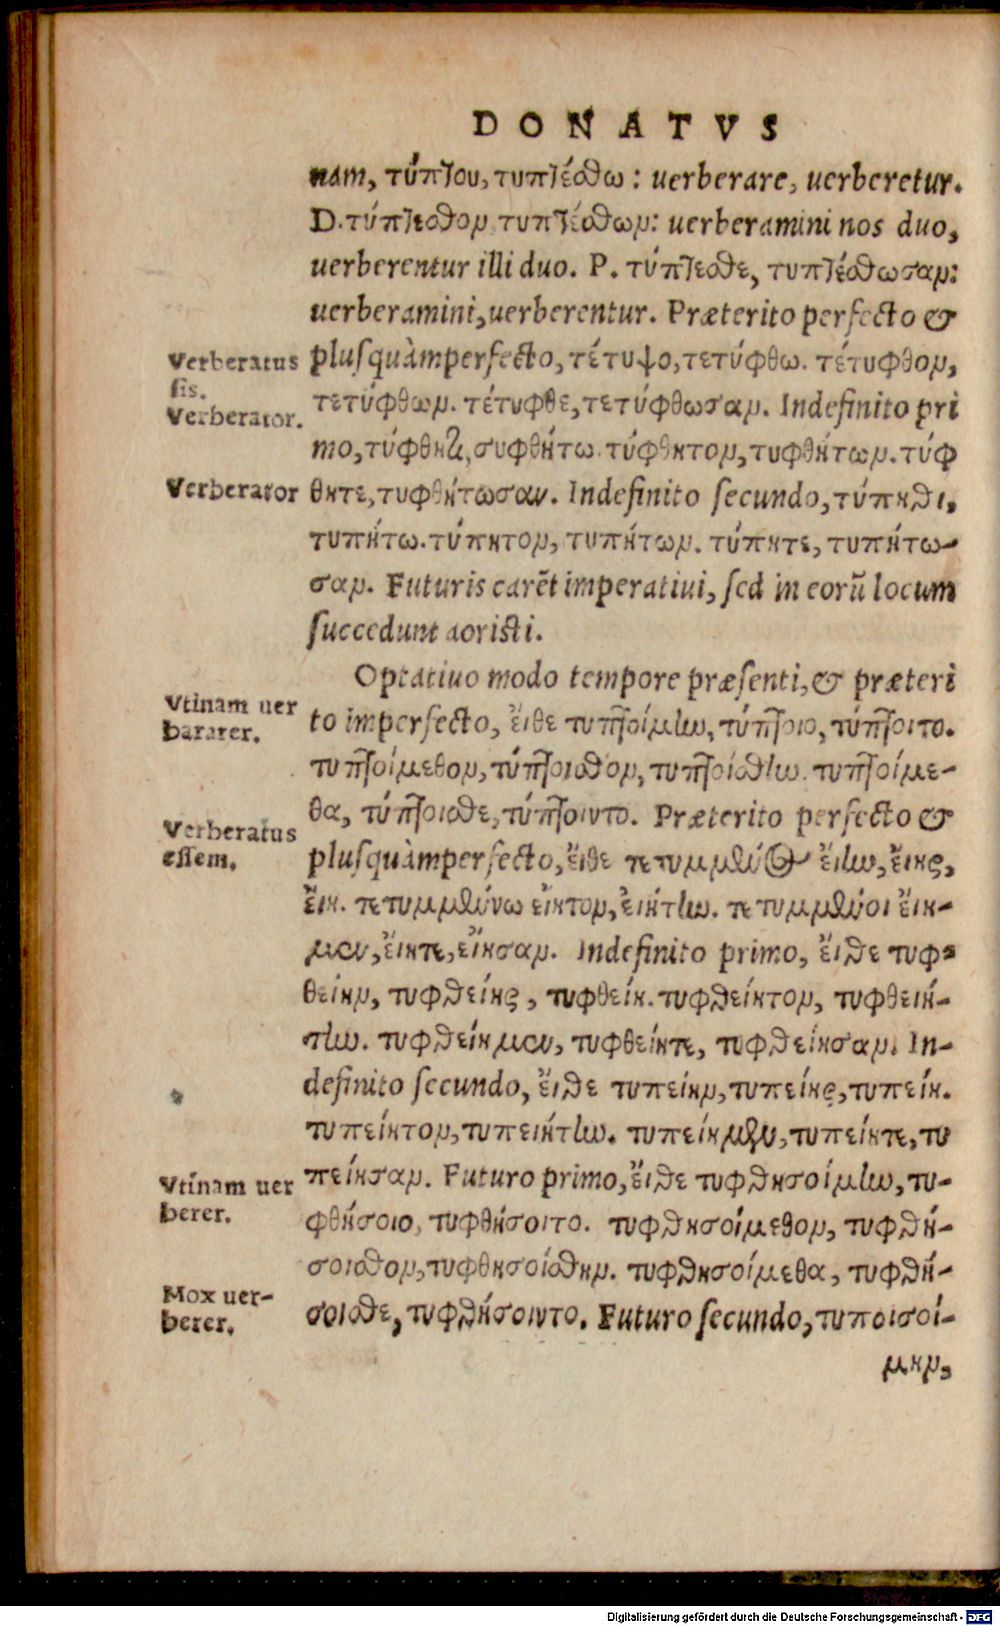 DONATVS
nam, τύπτου, τυπτέσθω: uerberare, uerberetur.
D. τύπτεσθον τυπτέσθων: uerberamini nos duo,
uerberentur illi duo. P. τύπτεσθε, τυπτέσθωσαν:
uerberamini, uerberentur. Præterito perfecto &
Verberatus
sis.
Verberator.
plusquàmperfecto, τέτυψο, τετύφθω. τέτυφθον,
τετύφθων. τέτυφθε, τετύφθωσαν. Indefinito pri
mo, τύφθητι, συφθήτω. τύφθητον, τυφθήτων. τύφ
Verberator
θητε, τυφθήτωσαν. Indefinito secundo, τύπηθι,
τυπήτω. τύπητον, τυπήτων. τύπητε, τυπήτω-
σαν. Futuris carēt imperatiui, sed in eorū locum
succedunt aoristi.
Optatiuo modo tempore præsenti, & præteri
Vtinam uer
bararer.
to imperfecto, ἔιθε τυπτοίμην, τύπτοιο, τύπτοιτο.
τυπτοίμεθον, τύπτοισθον, τυπτοίσθην. τυπτοίμε-
θα, τύπτοισθε, τύπτοιντο. Præterito perfecto &
Verberatus
essem.
plusquàmperfecto, ἔιθε τετυμμένος ἔιην, ἔιης,
ἔιη. τετυμμένω ἔιητον, ἐιήτην. τετυμμένοι ἔιη-
μεν, ἔιητε, ἔιησαν. Indefinito primo, ἔιθε τυφ-
θείην, τυφθείης, τυφθείη. τυφθείητον, τυφθειή-
την. τυφθείημεν, τυφθείητε, τυφθείησαν. In-
definito secundo, ἔιθε τυπείην, τυπείης, τυπείη.
τυπείητον, τυπειήτην. τυπείημεν, τυπείητε, τυ
πείησαν. Futuro primo, ἔιθε τυφθησοίμην, τυ-
Vtinam uer
berer.
φθήσοιο, τυφθήσοιτο. τυφθησοίμεθον, τυφθή-
σοισθον, τυφθησοίσθην. τυφθησοίμεθα, τυφθή-
Mox uer-
berer.
σοισθε, τυφθήσοιντο. Futuro secundo, τυποισοί-
μην,
Digitalisierung gefördert durch die Deutsche Forschungsgemeinschaft - DFG